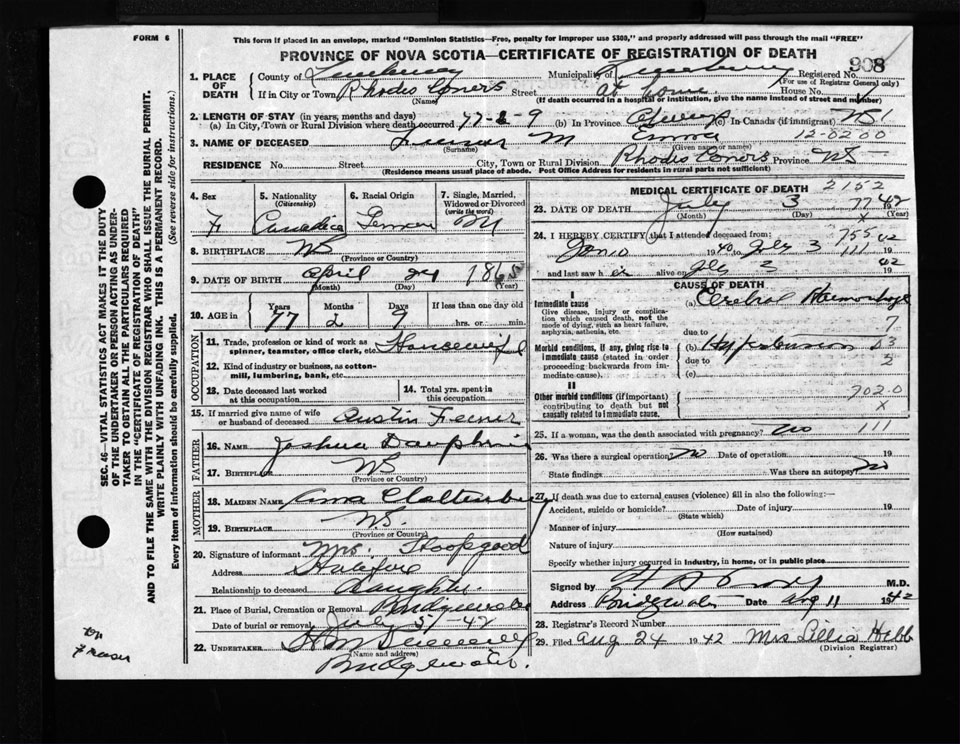 FORM 6
This form if placed in an envelope, marked "Dominion Statistics—Free, penalty for improper use $300," and properly addressed will pass through the mail "FREE"
PROVINCE OF NOVA SCOTIA—CERTIFICATE OF REGISTRATION OF DEATH
908
1. PLACE OF DEATH
County of Lunenburg Municipality of Lunenburg Registered No.
(For use of Registrar General only)
If in City or Town Rhodes Corner Street at home House No.
(Name) (If death occurred in a hospital or institution, give the name instead of street and number)
2. LENGTH OF STAY (in years, months and days)
(a) In City, Town or Rural Division where death occurred 77-2-9 (b) In Province always (c) In Canada (if immigrant)
12-0200
3. NAME OF DECEASED M Emma
(Surname) (Given name or names)
RESIDENCE No. Street City, Town or Rural Division Rhodes Corners Province NS
(Residence means usual place of abode. Post Office Address for residents in rural parts not sufficient)
4. Sex F
5. Nationality (Citizenship) Canadian
6. Racial Origin German
7. Single, Married, Widowed or Divorced (write the word) M
8. BIRTHPLACE NS
(Province or Country)
9. DATE OF BIRTH April 24 1865
(Month) (Day) (Year)
10. AGE in Years Months Days If less than one day old
77 2 9 hrs. or min.
OCCUPATION
11. Trade, profession or kind of work as spinner, teamster, office clerk, etc. Housewife
12. Kind of industry or business, as cotton-mill, lumbering, bank, etc.
13. Date deceased last worked at this occupation
14. Total yrs. spent in this occupation
15. If married give name of wife or husband of deceased Austin
FATHER
16. Name Joshua Dauphin
17. Birthplace NS
(Province or Country)
MOTHER
18. Maiden Name Anna Clattenburg
19. Birthplace NS.
(Province or Country)
20. Signature of informant Mrs. Hoopgood
Address Halifax
Relationship to deceased Daughter
21. Place of Burial, Cremation or Removal Bridgewater
Date of burial or removal July 5/-42
22. Undertaker
(Name and address)
Bridgewater.
MEDICAL CERTIFICATE OF DEATH 2152
23. DATE OF DEATH July 3 1942
77
(Month) (Day) (Year)
X
24. I HEREBY CERTIFY that I attended deceased from: 755
1940 to July 3 1942
111
and last saw her alive on July 3 1942
CAUSE OF DEATH
I
Immediate cause (a) Cerebral Haemorhage
Give disease, injury or complication which caused death, not the mode of dying, such as heart failure, asphyxia, asthenia, etc.
7
due to
Morbid conditions, if any, giving rise to immediate cause (stated in order proceeding backwards from immediate cause).
(b) Hypertension
due to
(c)
II
Other morbid conditions (if important) contributing to death but not causally related to immediate cause.
902.0
X
25. If a woman, was the death associated with pregnancy? no 111
26. Was there a surgical operation? no Date of operation 19
State findings Was there an autopsy? no
27. If death was due to external causes (violence) fill in also the following:—
Accident, suicide or homicide? Date of injury 19
(State which)
Manner of injury
(How sustained)
Nature of injury
Specify whether injury occurred in industry, in home, or in public place.
Signed by M.D.
Address Bridgewater Date Aug 11 1942
28. Registrar's Record Number
29. Filed Aug 24 1942 Mrs Lillia Hebb
(Division Registrar)
SEC. 46—VITAL STATISTICS ACT MAKES IT THE DUTY OF THE UNDERTAKER OR PERSON ACTING AS UNDERTAKER TO OBTAIN ALL THE PARTICULARS REQUIRED IN THE "CERTIFICATE OF REGISTRATION OF DEATH" AND TO FILE THE SAME WITH THE DIVISION REGISTRAR WHO SHALL ISSUE THE BURIAL PERMIT.
WRITE PLAINLY WITH UNFADING INK. THIS IS A PERMANENT RECORD.
Every item of information should be carefully supplied. (See reverse side for instructions.)
Fraser